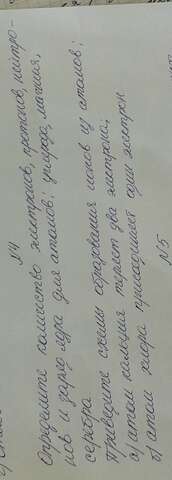 №4
Определите количество электронов, протонов, нейтро-
нов и заряд ядра для атомов: углерода, магния,
серебра
Приведите схемы образования ионов из атомов:
а) атом кальция теряет два электрона;
б) атом хлора присоединяет один электрон
№5